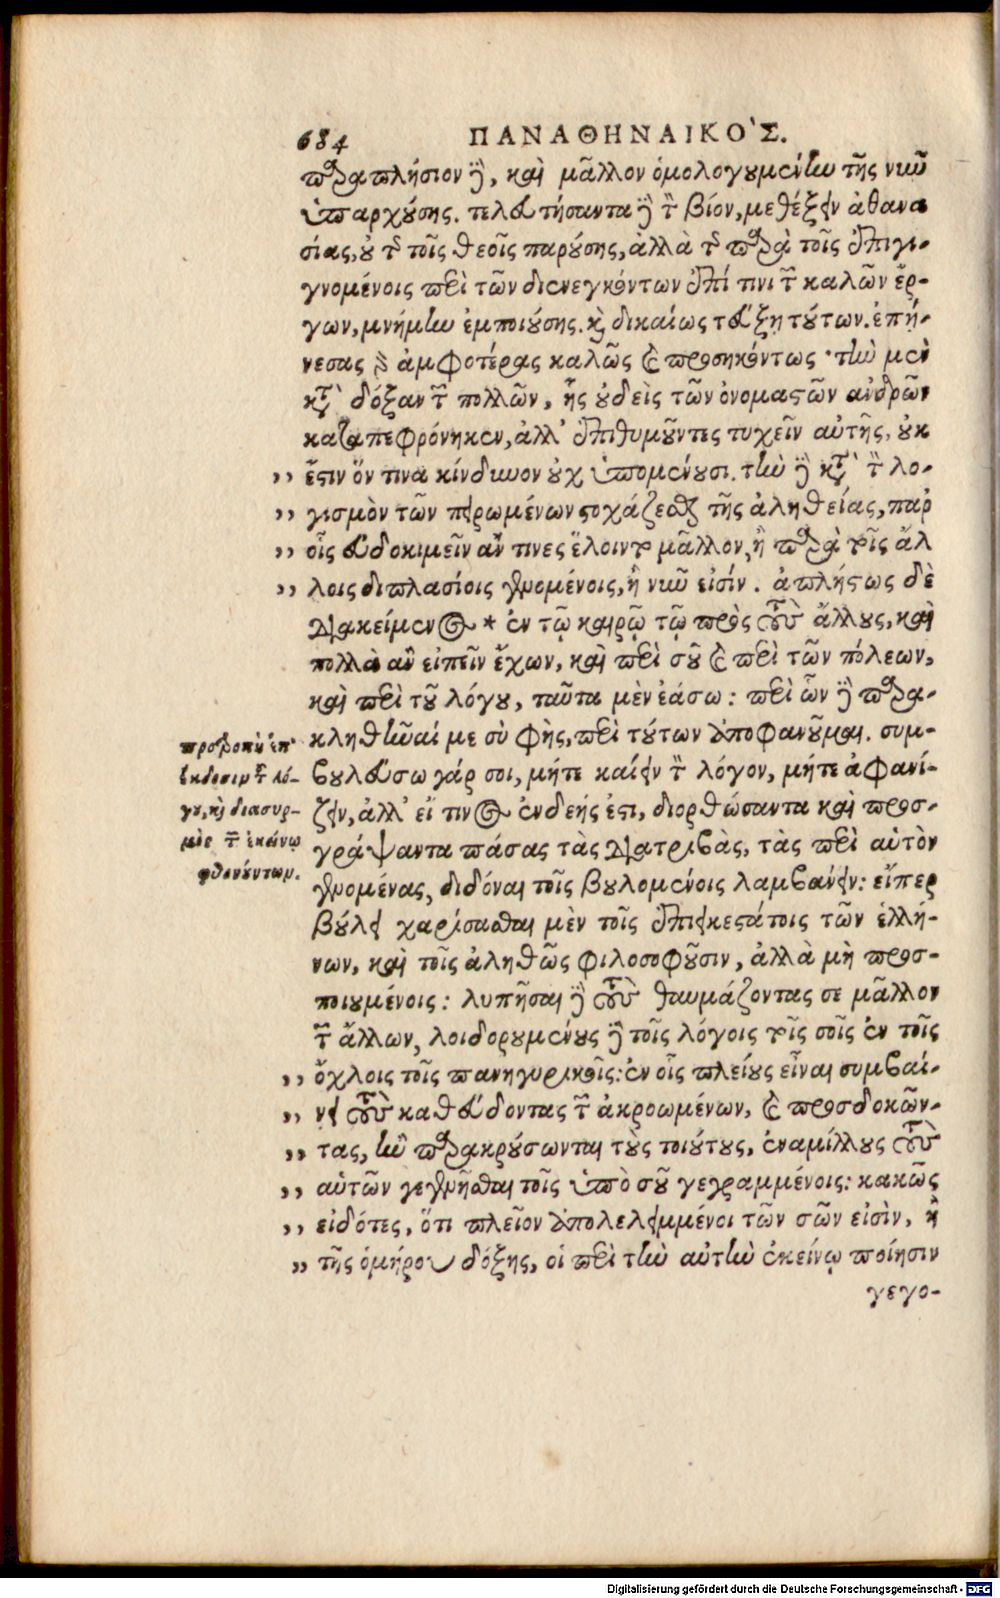 684 ΠΑΝΑΘΗΝΑΙΚΟ'Σ.
παραπλήσιον δὲ, καὶ μᾶλλον ὁμολογουμένην τῆς νῦν
ὑπαρχούσης. τελευτήσαντα δὲ τὸν βίον, μεθέξειν ἀθανα
σίας, οὐ τῆς τοῖς θεοῖς παρούσης, ἀλλὰ τῆς παρὰ τοῖς ἐπιγι-
γνομένοις περὶ τῶν διενεγκόντων ἐπί τινι τῶν καλῶν ἔρ-
γων, μνήμην ἐμποιούσης. καὶ δικαίως τεύξῃ τούτων. ἐπῄ-
νεσας γὰρ ἀμφοτέρας καλῶς καὶ προσηκόντως· τὴν μὲν
κατὰ δόξαν τῶν πολλῶν, ἧς οὐδεὶς τῶν ὀνομαστῶν ἀνδρῶν
καταπεφρόνηκεν, ἀλλ' ἐπιθυμοῦντες τυχεῖν αὐτῆς, οὐκ
,, ἔστιν ὅν τινα κίνδυνον οὐχ ὑπομένουσι. τὴν δὲ κατὰ τὸν λο-
,, γισμὸν τῶν πειρωμένων στοχάζεσθαι τῆς ἀληθείας, παρ'
,, οἷς εὐδοκιμεῖν ἄν τινες ἕλοιντο μᾶλλον, ἢ παρὰ τοῖς ἄλ
,, λοις διπλασίοις γενομένοις, ἢ νῦν εἰσίν. ἀπλήστως δὲ
διακείμενος * ἐν τῷ καιρῷ τῷ πρὸς τοὺς ἄλλους, καὶ
πολλὰ ἂν εἰπεῖν ἔχων, καὶ περὶ σοῦ καὶ περὶ τῶν πόλεων,
καὶ περὶ τοῦ λόγου, ταῦτα μὲν ἐάσω: περὶ ὧν δὲ παρα-
κληθῆναί με σὺ φὴς, περὶ τούτων ἀποφανοῦμαι. συμ-
βουλεύσω γάρ σοι, μήτε καίειν τὸν λόγον, μήτε ἀφανί-
ζειν, ἀλλ' εἴ τινος ἐνδεής ἐστι, διορθώσαντα καὶ προσ-
γράψαντα πάσας τὰς διατριβὰς, τὰς περὶ αὐτὸν
γενομένας, διδόναι τοῖς βουλομένοις λαμβάνειν: εἴπερ
βούλει χαρίσασθαι μὲν τοῖς ἐπιεικεστάτοις τῶν ἑλλή-
νων, καὶ τοῖς ἀληθῶς φιλοσοφοῦσιν, ἀλλὰ μὴ προσ-
ποιουμένοις: λυπῆσαι δὲ τοὺς θαυμάζοντας σε μᾶλλον
τῶν ἄλλων, λοιδορουμένους δὲ τοῖς λόγοις τοῖς σοῖς ἐν τοῖς
,, ὄχλοις τοῖς πανηγυρικοῖς: ἐν οἷς πλείους εἶναι συμβαί-
,, νει τοὺς καθεύδοντας τῶν ἀκροωμένων, καὶ προσδοκῶν-
,, τας, ἢν παρακρούσωνται τοὺς τοιούτους, ἐναμίλλους τοὺς
,, αὑτῶν γεγενῆσθαι τοῖς ὑπὸ σοῦ γεγραμμένοις: κακῶς
,, εἰδότες, ὅτι πλεῖον ἀπολελειμμένοι τῶν σῶν εἰσὶν, ἢ
,, τῆς ὁμήρου δόξης, οἱ περὶ τὴν αὐτὴν ἐκείνῳ ποίησιν
γεγο-
προτροπὴ ἐπ'
ἔκδοσιν τοῦ λό-
γου, καὶ διασυρ-
μὸς τῶν ἐκείνῳ
φθονούντων.
Digitalisierung gefördert durch die Deutsche Forschungsgemeinschaft - DFG